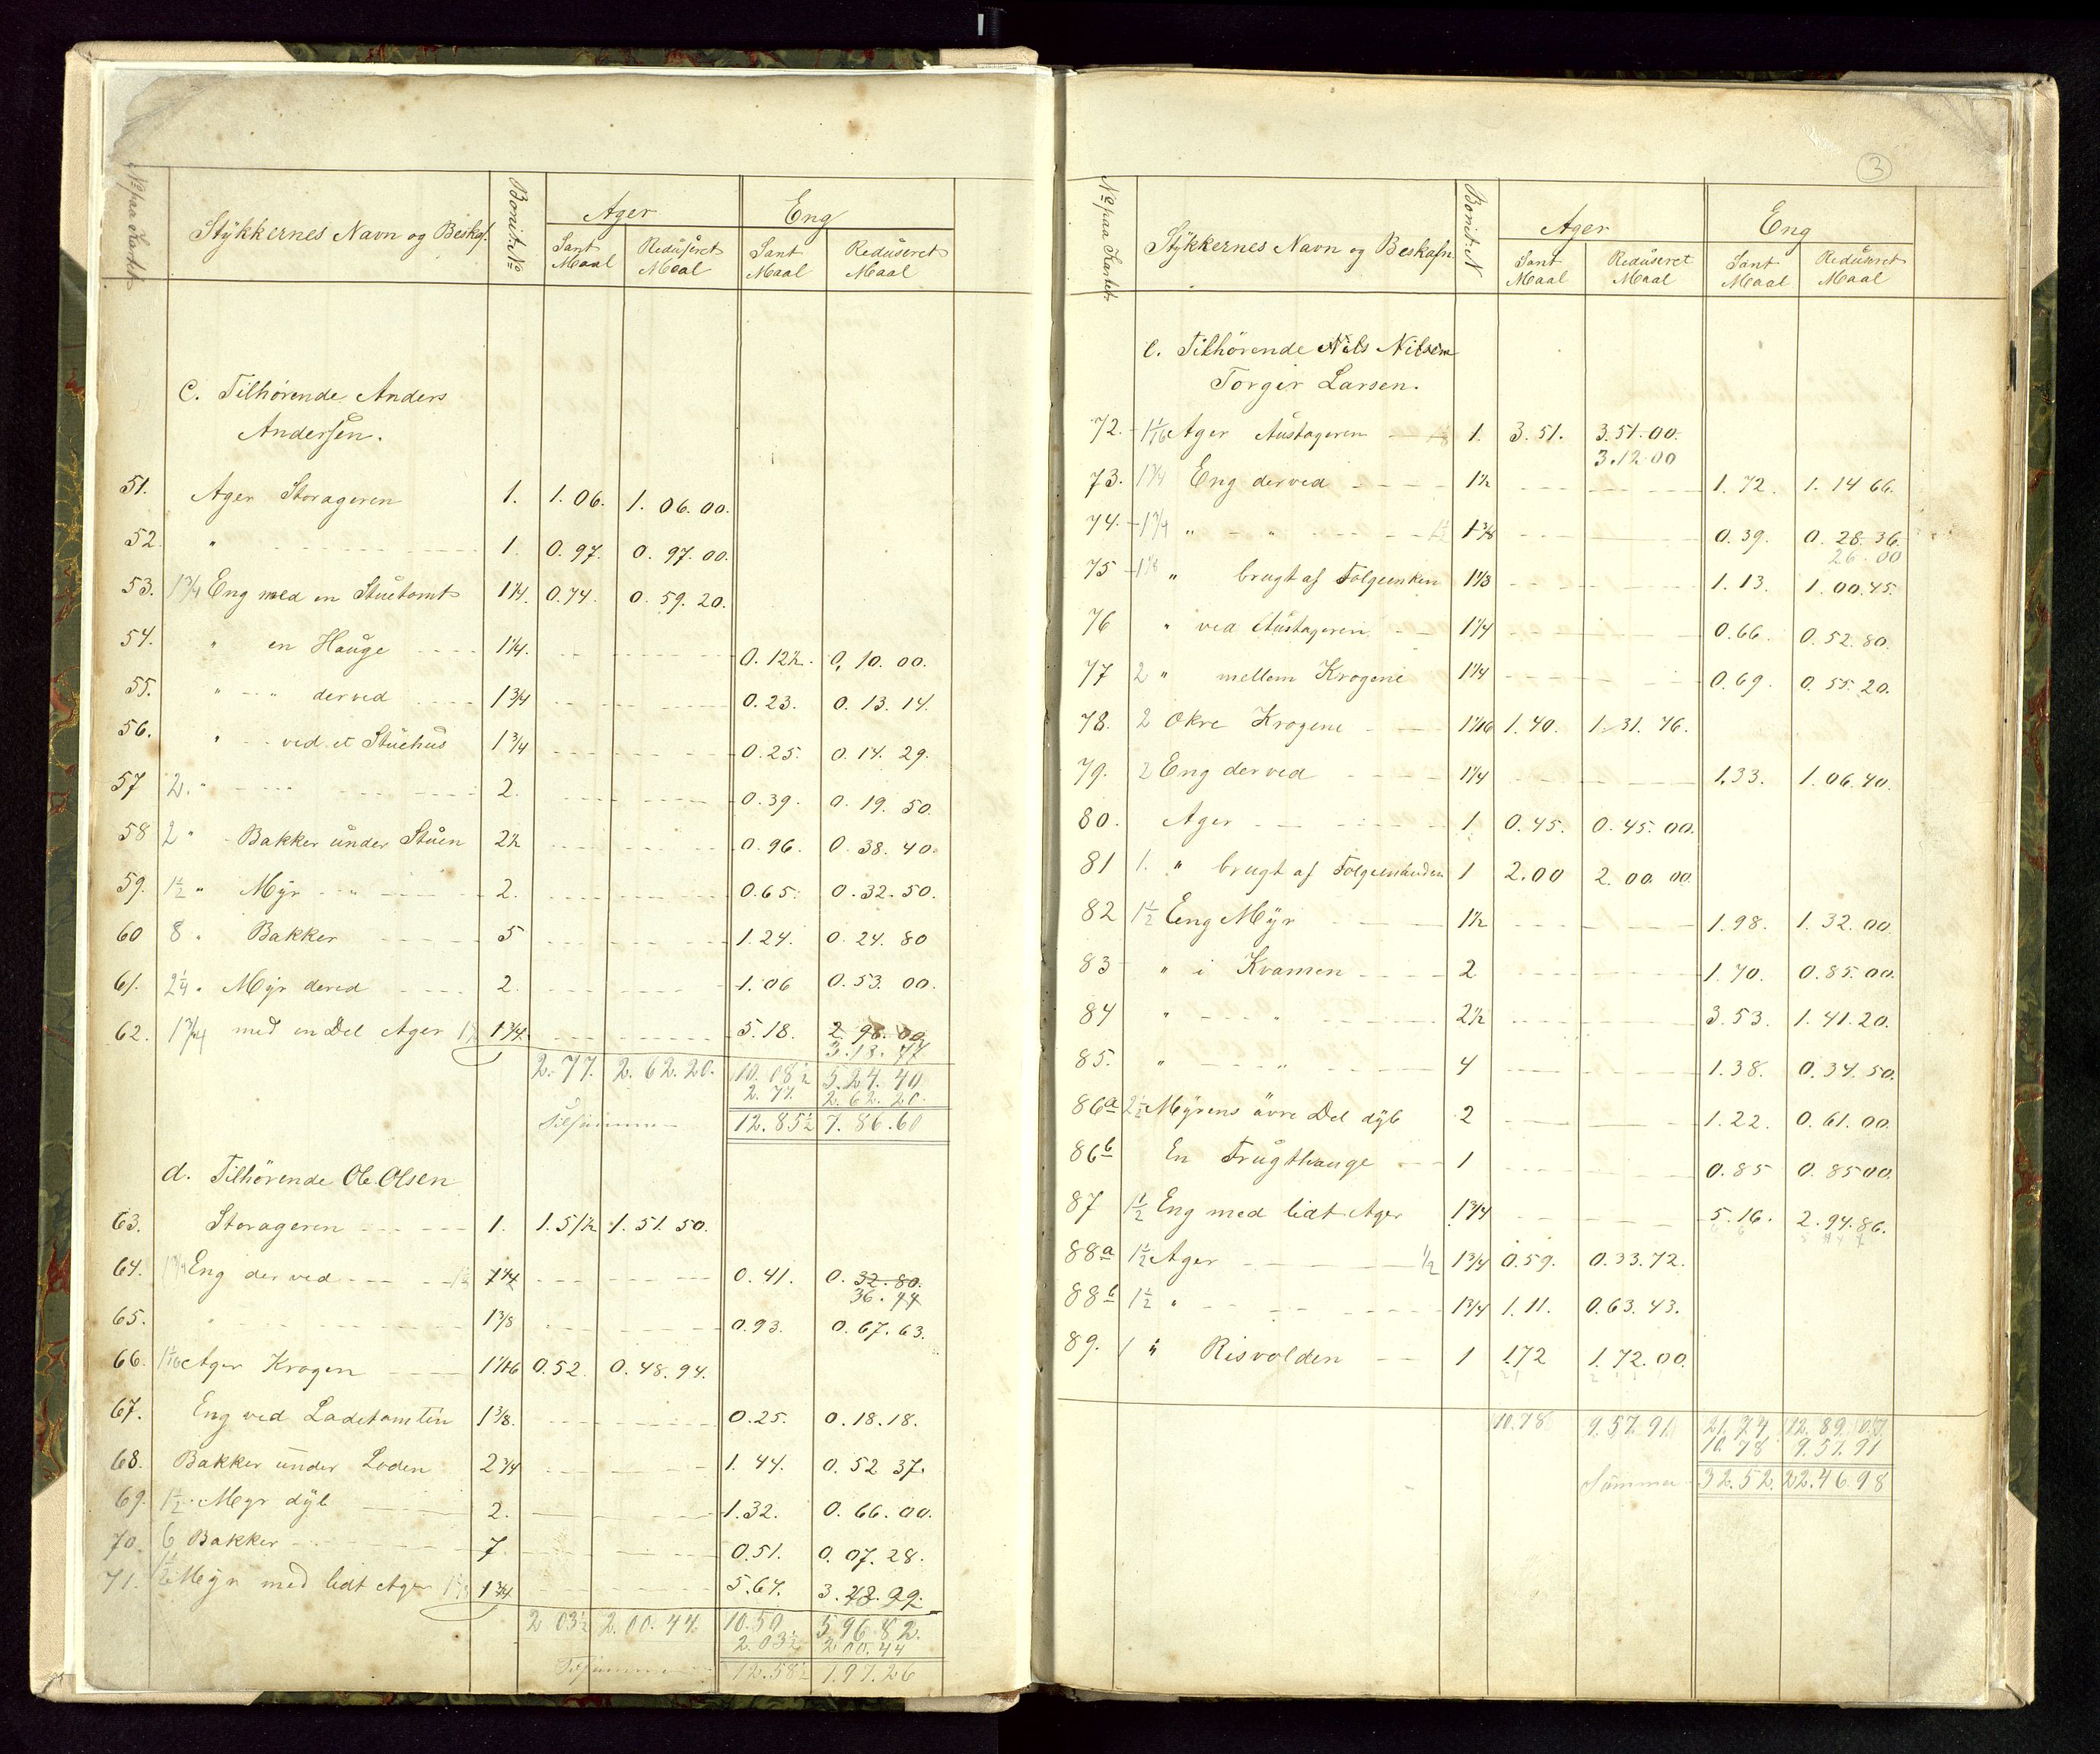 No paa Kartet
Stykkernes Navn og Beskaf.
Bonit. No
Ager
Eng
Sant Maal
Reduseret Maal
Sant Maal
Reduseret Maal
c. Tilhørende Anders
Andersen.
51. Ager Storageren 1. 1.06. 1. 06.00.
52. " 1. 0.97. 0. 97.00.
53. 1 3/4 Eng med en Stuetomt 1 1/4. 0.74. 0. 59. 20.
54. " en Hauge 1 1/4. 0.12 1/2. 0. 10. 00.
55. " " derved 1 3/4 0.23. 0. 13. 14.
56. " ved et Stuehus 1 3/4 0.25. 0. 14. 29.
57 2. " 2. 0.39. 0. 19. 50.
58 2 " Bakker under Stuen 2 1/2 0.96. 0. 38. 40.
59. 1 1/2 " Myr " 2. 0.65. 0. 32. 50.
60 8 " Bakker 5 1.24. 0. 24. 80
61. 2 1/4 " Myr derved 2. 1.06 0. 53. 00.
62. 1 3/4 med en Del Ager 1 3/4. 5.18. 2 98. 00
3.18. 77
2.77. 2. 62.20. 10. 08 1/2 5.24. 40
2. 77. 2. 62. 20.
Tilsammen 12. 85 1/2 7. 86. 60
d. Tilhørende Ole Olsen
63. Storageren 1. 1.51 1/2 1. 51. 50.
64. 1 3/4 Eng derved 1 1/4 0.41. 0. 32. 80.
36. 44
65. " 1 3/8 0.93. 0. 67. 63.
66. 1 1/16 Ager Krogen 1 1/16 0.52. 0. 48. 94.
67. Eng ved Ladetomten 1 3/8. 0.25. 0. 18. 18.
68. Bakker under Loden 2 3/4 1. 44. 0. 52 37.
69. 1 1/2 Myr dyb 2. 1.32. 0. 66. 00.
70. 6 Bakker 7. 0.51. 0. 07. 28.
71. Myr med lidt Ager 1 3/4 5.64. 3.
2 03 1/2 2. 00. 44 10.50 5 96 82.
2. 03 1/2 2 00. 44
Tilsammen 12. 58 1/2 1.97.26
3
No paa Kartet
Stykkernes Navn og Beskafn
Bonit. N
Ager
Eng
Sant Maal
Reduseret Maal
Sant Maal
Reduseret Maal
e. Tilhørende Nils Nilsen
Torger Larsen.
72. 1 1/16 Ager Austageren 1. 3. 51. 3. 51. 00.
3.12.00
73. 1 3/4 Eng derved 1 1/2 1. 72. 1. 14 66.
74. 1 3/4 " " 1 3/8 0. 39. 0. 28. 36.
26. 00
75 1 1/8 " brugt af Folgeenken 1 1/8 1. 13. 1. 00.45.
76 " ved Austageren 1 1/4 0.66. 0. 52. 80.
77 2 " mellem Krogene 1 1/4 0.69. 0. 55. 20.
78. 2 Okre Krogene 1 1/16 1. 40. 1. 31. 76.
79. 2 Eng derved 1 1/4 1.33. 1. 06. 40.
80. Ager 1 0.45. 0. 45. 00.
81 1. " brugt af Folgemanden 1 2.00 2. 00. 00
82 1 1/2 Eng Myr 1 1/2 1.98. 1. 32. 00.
83 " i Kvamen 2 1.70. 0. 85. 00.
84 " " 2 1/2 3.53. 1. 41. 20.
85. " " 4 1.38. 0. 34. 50.
86a 2 1/2 Myrens övre Del dyb 2 1.22. 0. 61. 00.
86b En Frugthauge 1 0.85 0. 85 00.
87 1 1/2 Eng med lidt Ager 1 3/4 5.16. 2. 94. 86.
88a 1 1/2 Ager 1/2 1 3/4 0.59. 0.33.72.
88b 1 1/2 " 1 3/4 1.11. 0.63. 43.
89. 1 " Risvolden 1 1.72 1. 72. 00.
10.78 9. 57. 91. 21. 74 12. 89. 07.
10. 78 9. 57. 91
Summa 32.52. 22.46 98